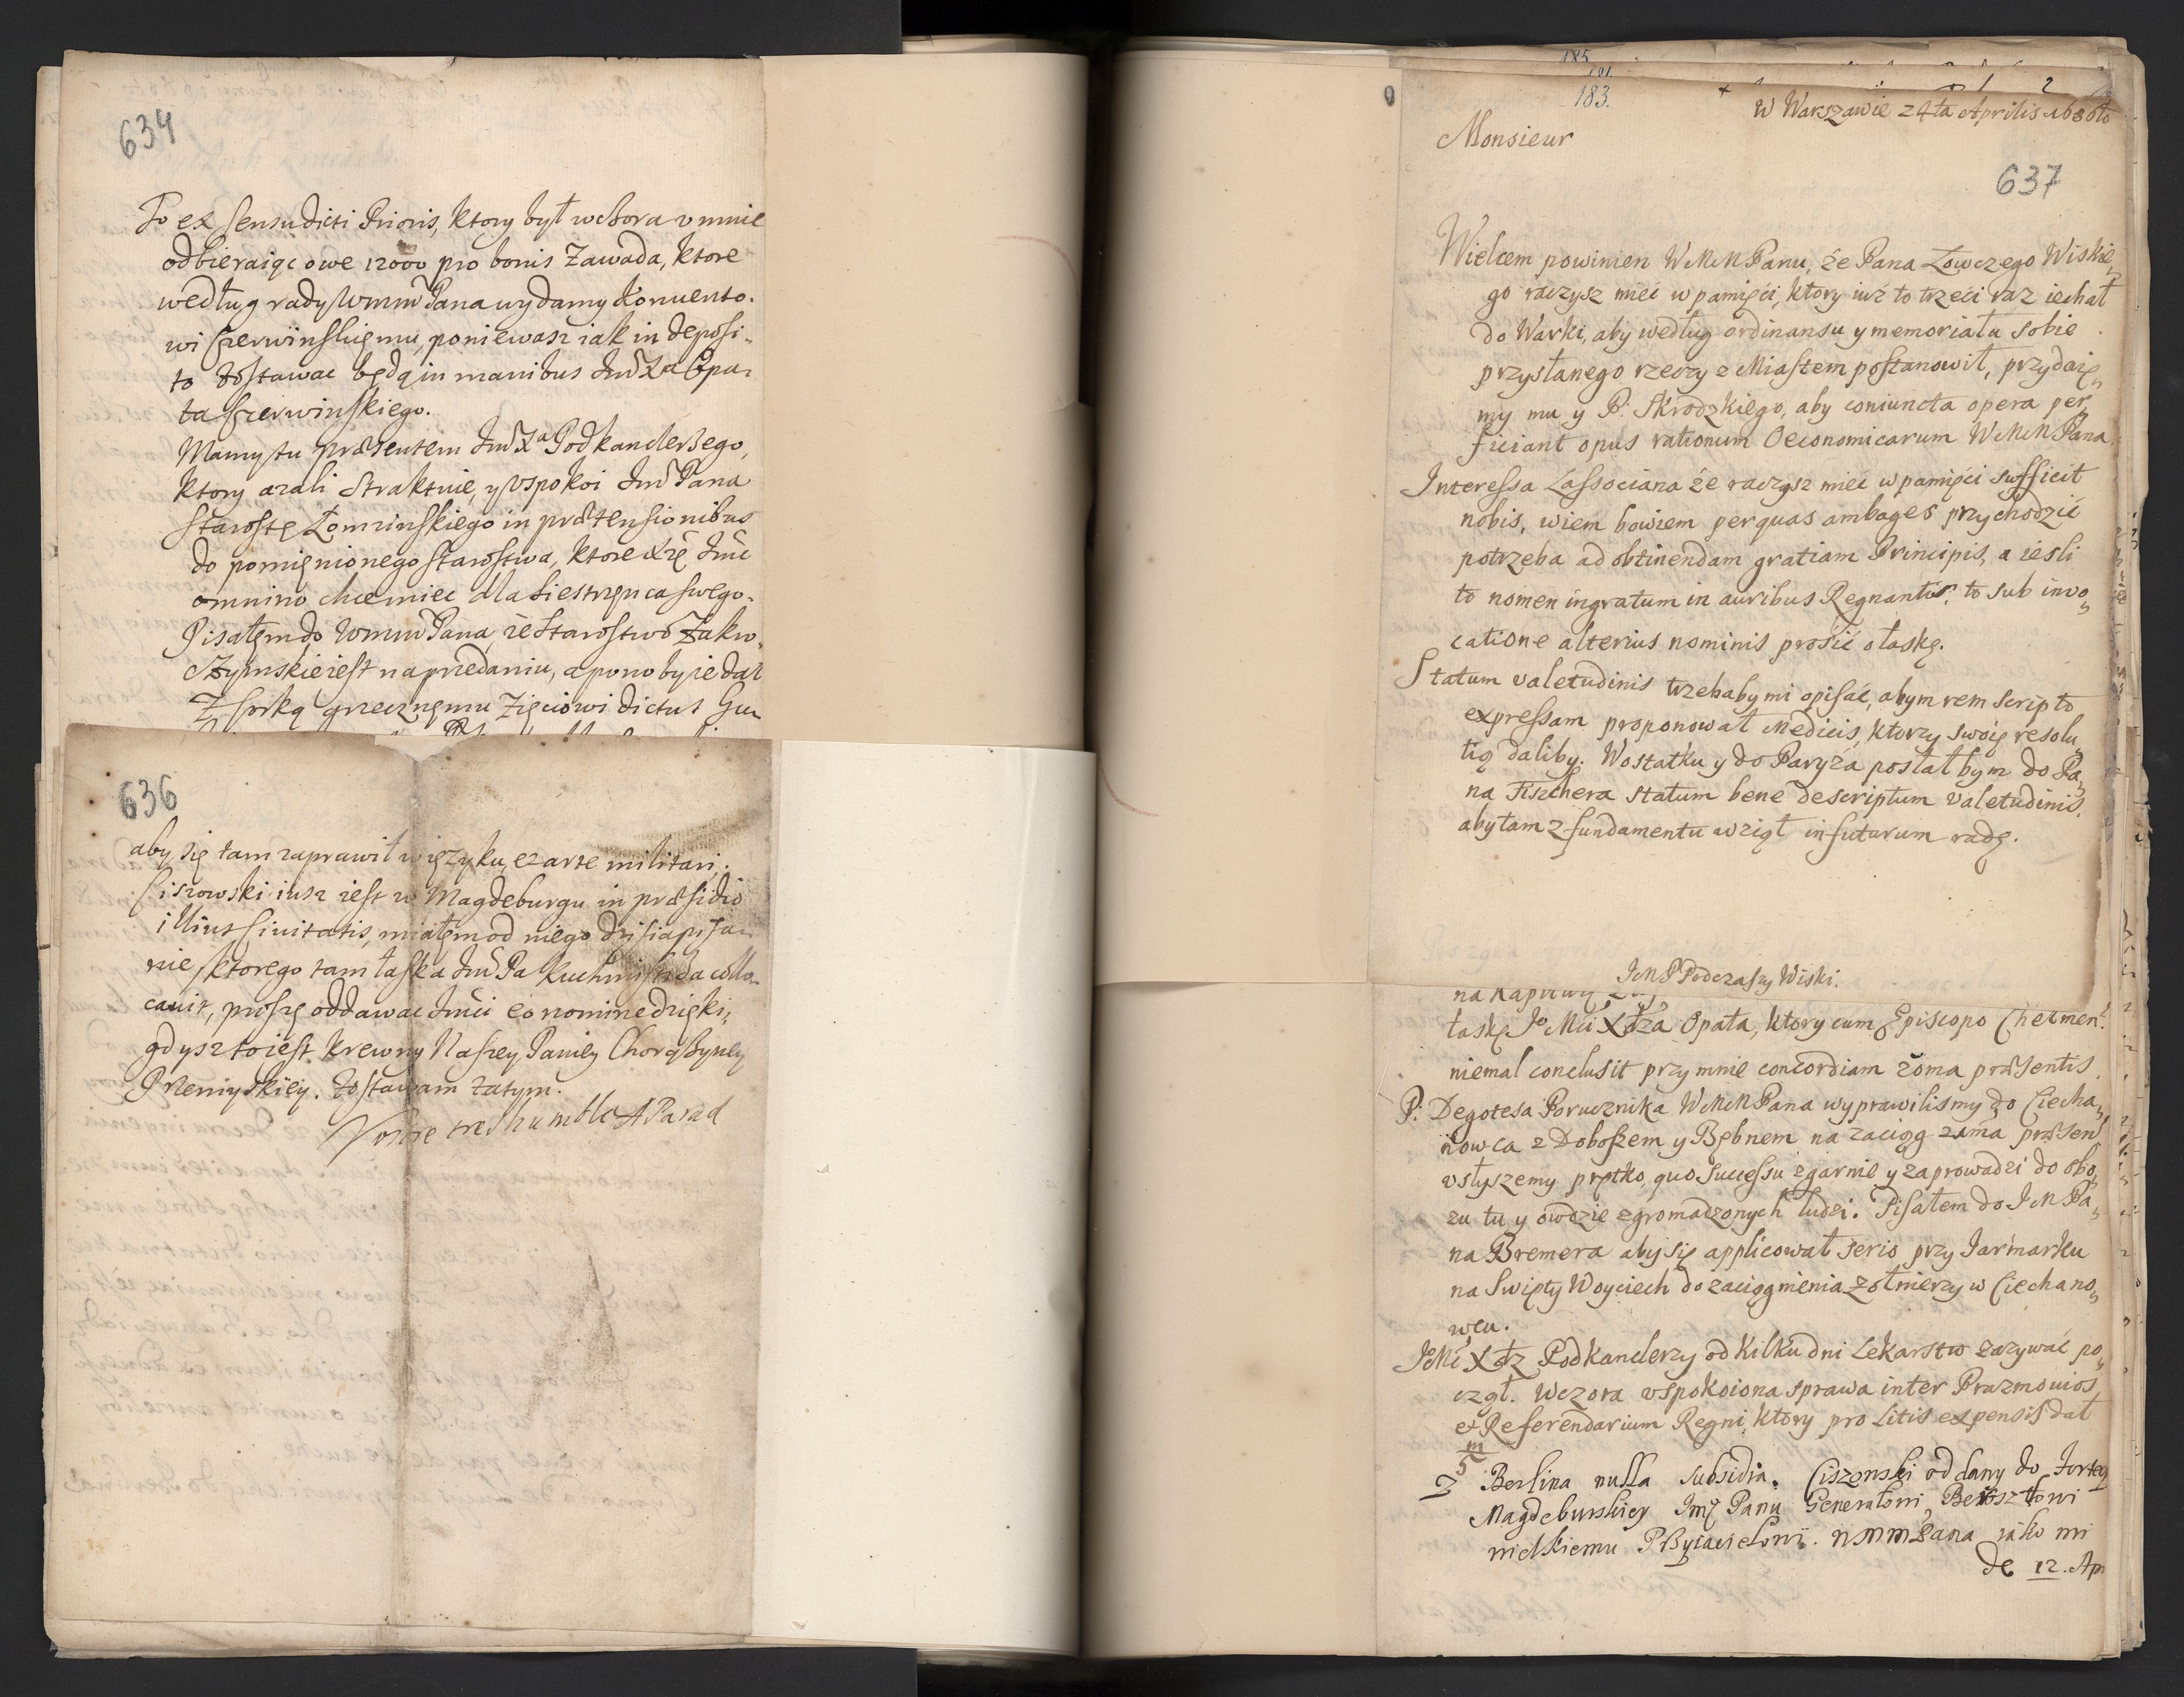 634
To ex sensu dicti Prioris, ktory był wchora v mnie
odbieraiąc owe 12000 pro bonis Zawada, ktore
według rady Wmm Pana wydamy Konwento-
wi Czerwinskięmu, poniewasz iak in deposi-
to zostawac będą in manibus Jmͨ Xa Opa-
ta Czerwinskiego.
Mamy tu præsentem Jmͨ Xa Podkanclerßego,
ktory azali straktuie, y vspokoi Jmͨ Pana
Starostę Łomzinskiego in prætensionibus
do pomięnionego starostwa, ktore Xżę Jmc
omnino chce miec dla siestrzęnca swego.
Pisałęm do Wmm Pana, że Starostwo Zakro-
czymskie iest na przedaniu, a pono by ie dał
Z corką grzecznęmu Zięciowi dictus Gu-
636
aby się tam zaprawił w ięzyku, ez arte militari;
Ciszowski iusz iest w Magdeburgu in præsidio
illius Civitatis, miałęm od niego dzisia pisa-
nie, ktorego tam łaska Jmͨ Pa Kuchmistrza collo-
cauit, proszę oddawac Jmci eo nomine dzięki,
gdysz to iest krewny Naszey Paniey Chorąßyney
Przemyskiey. Zostawam zatym.
Vostre tres humble A Parad
185
181.
183.
1 2
W Warszawie 24ta Aprilis 1680to
Monsieur
637
Wielcem powinien WMM Panu, że Pana Łowczego Wiskie„
go raczysz mieć w pamięci, ktory iuż to trzeci raz iechał
do Warki, aby według ordinansu y memoriału sobie
przysłanego rzeczy z Miastem postanowił, przydaię„
my mu y P: Skrodzkiego, aby coniuncta opera per„
ficiant opus rationum Oeconomicarum WMM Pana.
Interessa Lassociana że raczysz mieć w pamięci sufficit
nobis, wiem bowiem per quas ambages przychodzić
potrzeba ad obtinendam gratiam Principis, a iesli
to nomen ingratum in auribus Regnantis, to sub invo„
catione alterius nominis prosić o łaskę.
Statum valetudinis trzebaby mi opisać, abym rem scripto
expressam proponował Medicis, ktorzy swoię resolu„
tią daliby. W ostatku y do Paryża posłał bym do Pa„
na Fischera statum bene descriptum valetudinis,
aby tam z fundamentu wziął in futurum radę.
JMP Podczaszy Wiski.
łaskę Jo Mci Xdza Opata, ktory cum Episcopo Chełmen:
niemal conclusit przy mnie concordiam 20ma præsentis.
P: Degotesa Porucznika WMM Pana wyprawilismy do Ciecha„
nowca z Doboszem y Bębnem na zaciąg 22ma præsen:
vsłyszemy prętko, quo Successu zgarnie y zaprowadzi do obo„
zu tu y owdzie zgromadzonych ludzi. Pisałem do JM Pa„
na Bremera aby się applicował serio przy Iarmarku
na Swięty Woyciech do zaciągnienia żołnierzy w Ciechano„
wcu.
JeMć Xdz Podkanclerzy od kilku dni Lekarstw zazywać po„
czął. Wczora vspokoiona sprawa inter Prazmovios,
et Referendarium Regni, ktory pro Litis expensis dał
m
5
Z Berlina nulla subsidia. Ciszewski oddany do Fortecy
Magdeburskiey Jmć Panu Generałowi
wielkiemu Pßyiacielowi. WMMPana iako mi
de 12. Ap